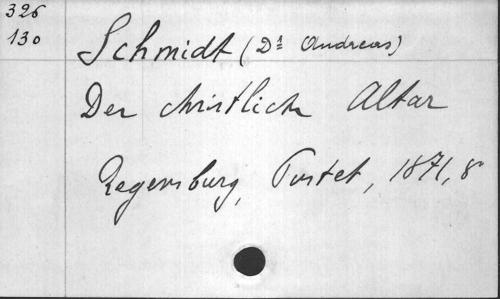 326
130
Schmidt (Dr Andreas)
Der christliche Altar
Regensburg, Pustet, 1871, 8°